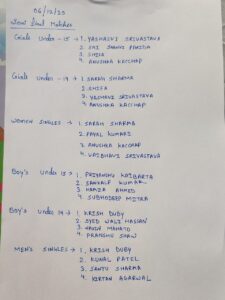 06/12/23
Semi Final Matches
Girls Under - 15 → 1. YASHASVI SRIVASTAVA
2. SRI
3. SHIFA
4. ANUSHKA KACCHAP
Girls Under - 19 → 1. SARAH SHARMA
2. SHIFA
3. YASHASVI SRIVASTAVA
4. ANUSHKA KACCHAP
WOMEN SINGLES → 1. SARAH SHARMA
2. PAYAL KUMARI
3. ANUSHKA KACCHAP
4. VAISHNAVI SRIVASTAVA
Boy's under 15 → 1. PRIYANSHU KAIBARTA
2. SANKALP KUMAR
3. HAMZA AHMED
4. SUBHODEEP MITRA
Boy's under 19 → 1. KRISH DUBY
2. SYED WALI HASSAN
3. MAHATO
4. PRANSHU SHAW
MEN'S SINGLES → 1. KRISH DUBY
2. KUNAL PATEL
3. SANTU SHARMA
4. KIRTAN AGARWAL